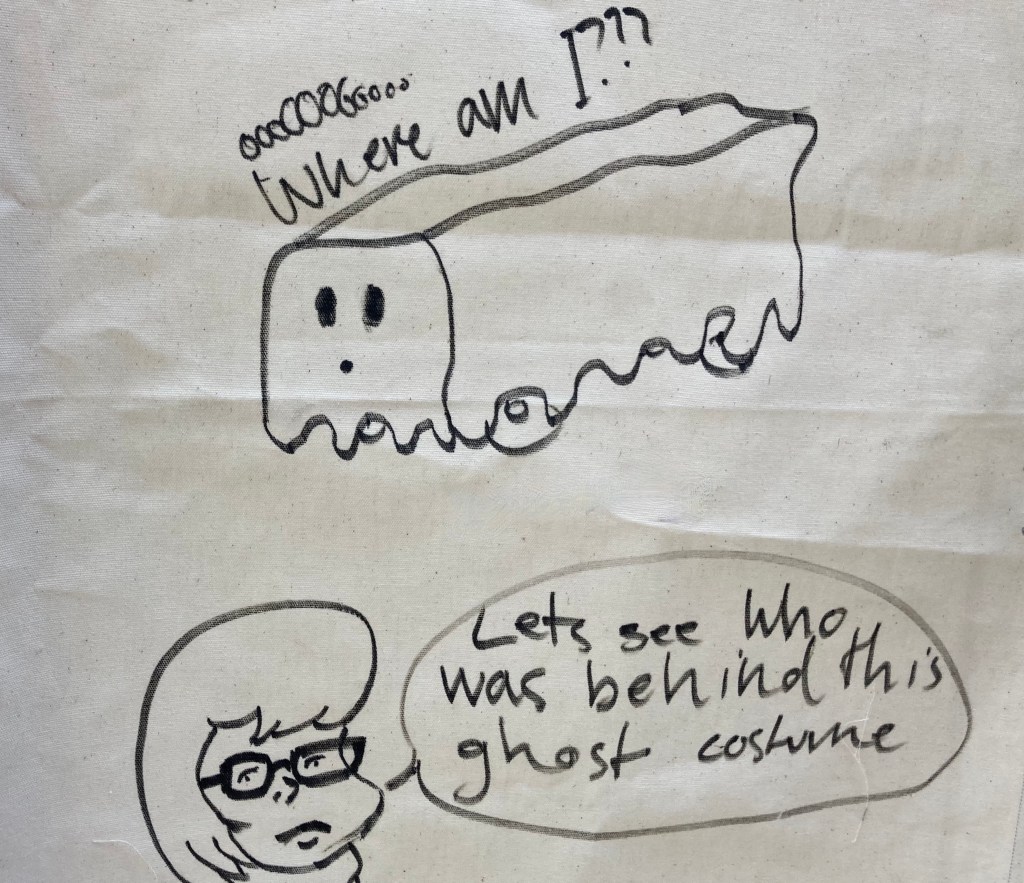 ooooOOOOoooo
Where am I???
Lets see who
was behind this
ghost costume